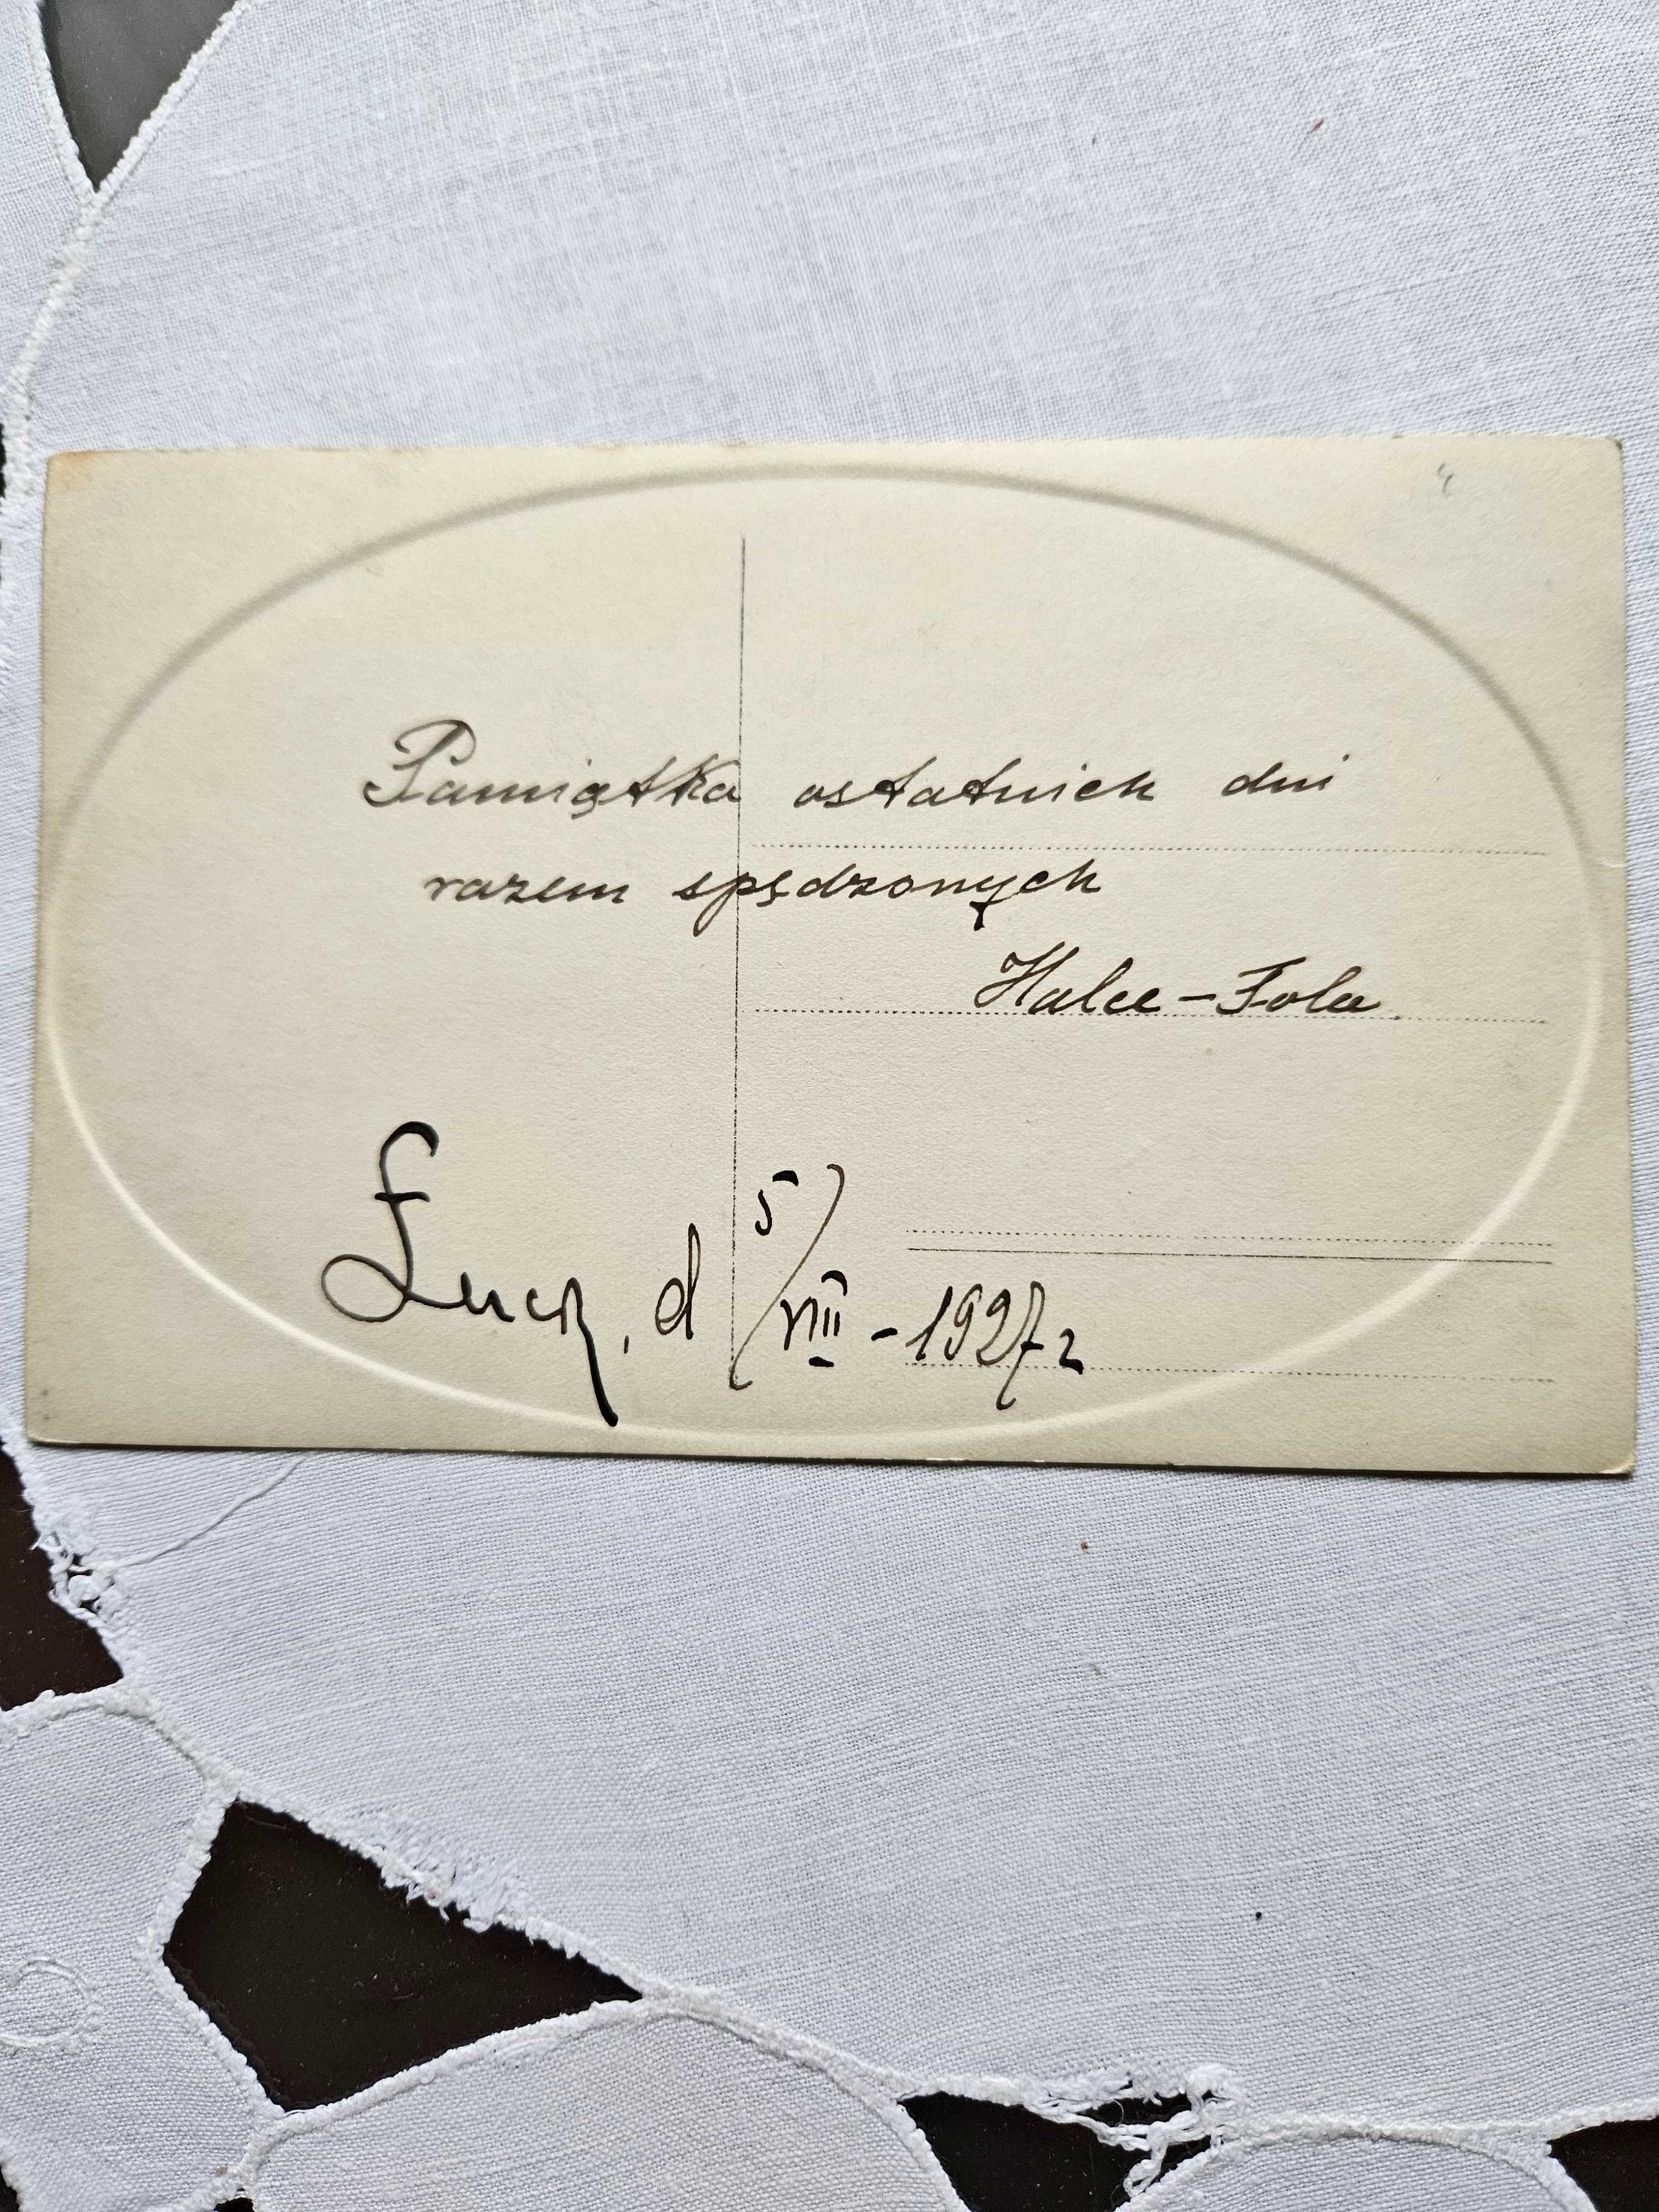 Pamiątka ostatnich dni
razem spędzonych
Halce - Jola
Łuck, d 5/VIII - 1927 r